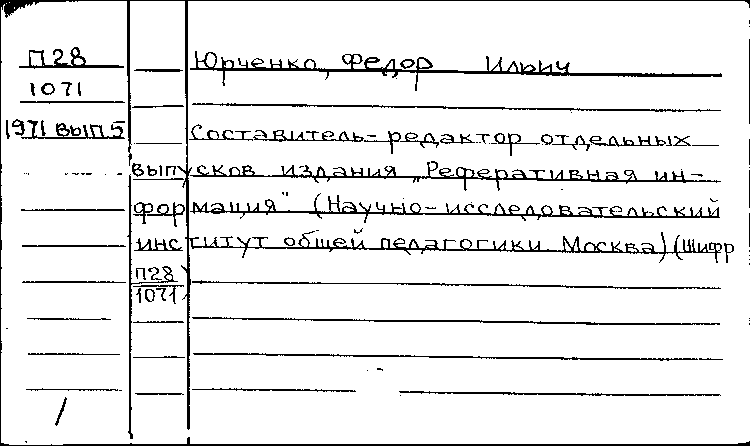 П28 Юрченко, Федор Ильич
1071
1971 вып.5 Составитель-редактор отдельных
выпусков издания „Реферативная ин-
формация". (Научно-исследовательский
институт общей педагогики. Москва) (Шифр
П28
1071)